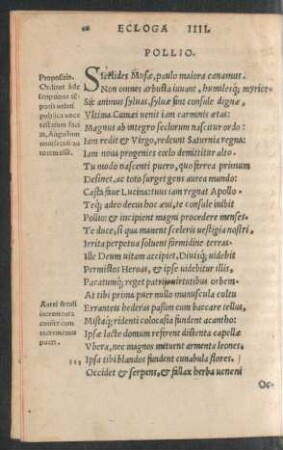 68 ECLOGA IIII.
POLLIO.
Propositio.
Sicelides Musæ, paulo maiora canamus.
Non omnes arbusta iuuant, humilesq; myricæ
Siq; canimus syluas, syluæ sint consule dignæ,
Vltima Cumæi uenit iam carminis ætas:
Magnus ab integro seclorum nascitur ordo:
Iam redit & Virgo, redeunt Saturnia regna:
Iam noua progenies coelo demittitur alto.
Tu modo nascenti puero, quo ferrea primum
Desinet, ac toto surget gens aurea mundo:
Casta faue Lucina: tuus iam regnat Apollo.
Teq; adeo decus hoc æui, te consule inibit
Pollio: & incipient magni procedere menses.
Te duce, si qua manent sceleris uestigia nostri,
Irrita perpetua soluent formidine terras.
Ille Deum uitam accipiet, Diuisq; uidebit
Permistos Heroas, & ipse uidebitur illis,
Pacatumq; reget patrijs uirtutibus orbem.
At tibi prima puer nullo munuscula cultu
Erranteis hederas passim cum baccare tellus,
Mistaq; ridenti colocasia fundet acantho:
Ipsæ lacte domum referent distenta capellæ
Vbera, nec magnos metuent armenta leones.
Ipsa tibi blandos fundent cunabula flores.
Occidet & serpens, & fallax herba ueneni
Oc-